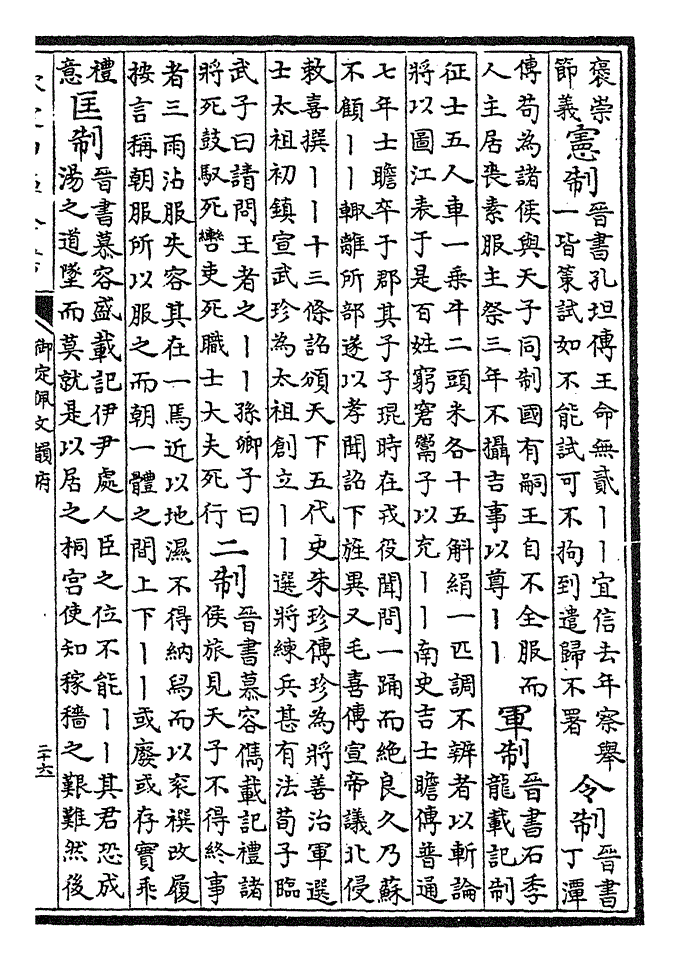 褒崇
節義
憲制
晉書孔坦傳王命無貳丨丨宜信去年察舉
一皆策試如不能試可不拘到遣歸不署
令制
晉書
丁潭
傳苟為諸侯與天子同制國有嗣王自不全服而
人主居喪素服主祭三年不攝吉事以尊丨丨
軍制
晉書石季
龍載記制
征士五人車一乗牛二頭米各十五斛絹一匹調不辨者以斬論
將以圖江表于是百姓窮窘鬻子以充丨丨南史吉士瞻傳普通
七年士瞻卒于郡其子子琨時在戎役聞問一踊而絶良久乃蘇
不顧丨丨輙離所部遂以孝聞詔下旌異又毛喜傳宣帝議北侵
敕喜撰丨丨十三條詔頒天下五代史朱珍傳珍為將善治軍選
士太祖初鎮宣武珍為太祖創立丨丨選將練兵甚有法荀子臨
武子曰請問王者之丨丨孫卿子曰
將死鼓馭死轡吏死職士大夫死行
二制
晉書慕容儁載記禮諸
侯旅見天子不得終事
者三雨沾服失容其在一焉近以地濕不得納舄而以衮襈改履
按言稱朝服所以服之而朝一體之間上下丨丨或廢或存實乖
禮
意
匡制
晉書慕容盛載記伊尹處人臣之位不能丨丨其君恐成
湯之道墜而莫就是以居之桐宮使知稼穡之艱難然後
御定佩文韻府
二十六